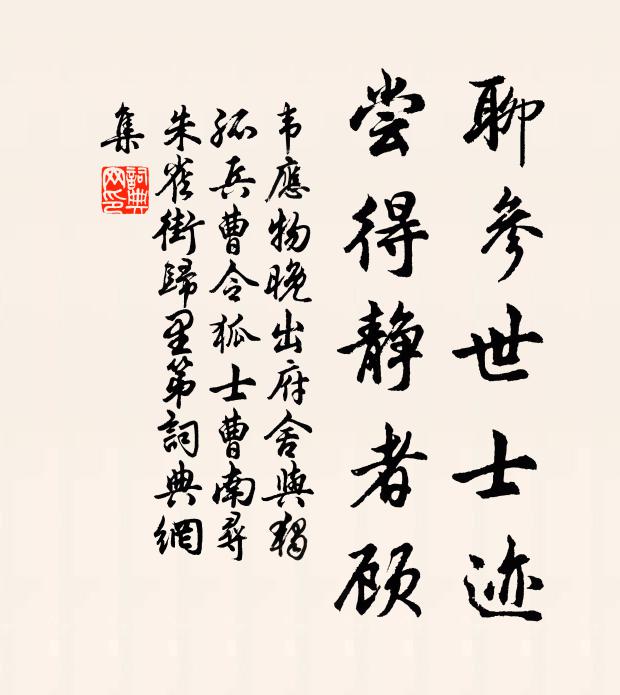 聊参世士迹
尝得静者顾
韦應物晚出府舍與獨
孤兵曹令狐士曹南尋
朱雀街歸里第詞典網
集
詞典
网印